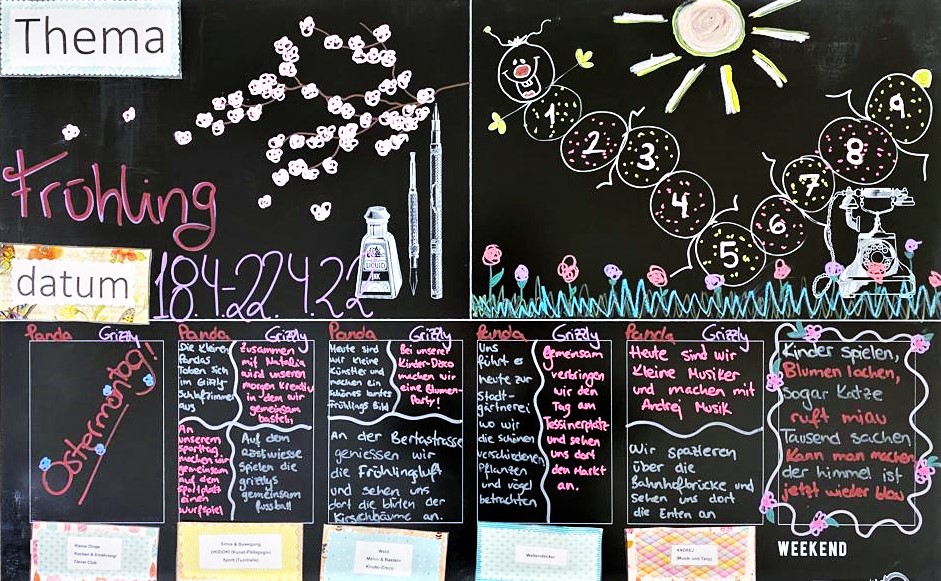 Thema
Frühling
datum 18.4-22.4.22
LIQUID
1
2
3
4
5
6
7
8
9
Panda Grizzly
Ostermontag!
Panda Grizzly
Die kleinen
Pandas
Toben sich
im Grizzly-
Schlafzimmer
aus
Zusammen
mit Natalia
wird unseren
morgen Kreativ
in dem wir
gemeinsam
basteln
An
unserem
sporttag
machen wir
gemeinsam
auf dem
spoltplatz
einen
wurfspiel
Auf dem
Röstiwiese
Spielen die
grizzlys
gemeinsam
fussball
Panda Grizzly
Heute sind
wir kleine
Künstler und
machen ein
schönes buntes
frühlings Bild
Bei unserer
Kinder-Disco
machen wir
eine Blumen-
Party!
An der Bertastrasse
geniessen wir
die Frühlingsluft
und sehen uns
dort die blüten der
Kirschbäume an.
Panda Grizzly
Uns
führt es
heute zur
Stadt-
gärtnerei
wo wir
die schönen
verschiedenen
Pflanzen
und vögel
betrachten
Gemeinsam
verbringen
wir den
Tag am
Tessinerplatz
und sehen
uns dort
den Markt
an.
Panda Grizzly
Heute Sind wir
Kleine Musiker
und machen mit
Andrej Musik
Wir spazieren
über die
Bahnhofbrücke und
sehen uns dort
die Enten an
Kinder spielen,
Blumen lachen,
sogar Katze
ruft miau
Tausend sachen
Kann man machen
der himmel ist
jetzt wieder blau
WEEKEND
Kochen & Ernährung)
Clever Club
Sinne & Bewegung
Sport (Turnhalle)
Wald
Malen & Basteln
Kinder-Disco
Weltentdecker
ANDREJ
(Musik und Tanz)